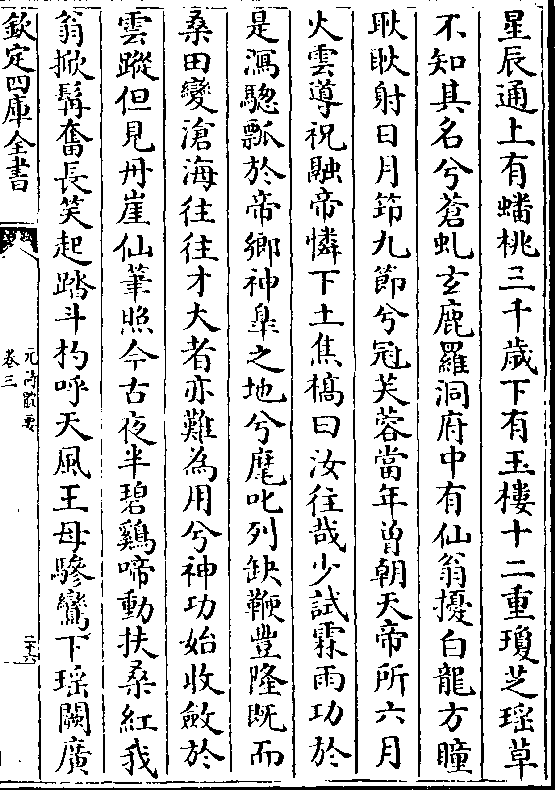 星辰通上有蟠桃三千歳下有玉樓十二重瓊芝瑶草
不知其名兮蒼虬玄鹿羅洞府中有仙翁擾白龍方瞳
耿耿射日月筇九節兮冠芙蓉當年曽朝天帝所六月
火雲導祝融帝憐下土焦槁曰汝往哉少試霖雨功於
是馮騘瓢於帝鄉神臯之地兮麾叱列缺鞭豐隆既而
桑田變滄海往往才大者亦難為用兮神功始收斂於
雲蹤但見丹崖仙筆照今古夜半碧鷄啼動扶桑紅我
翁掀髯奮長笑起踏斗杓呼天風王母驂鸞下瑶闕廣
欽定四庫全書
元詩體要
卷三
二十六